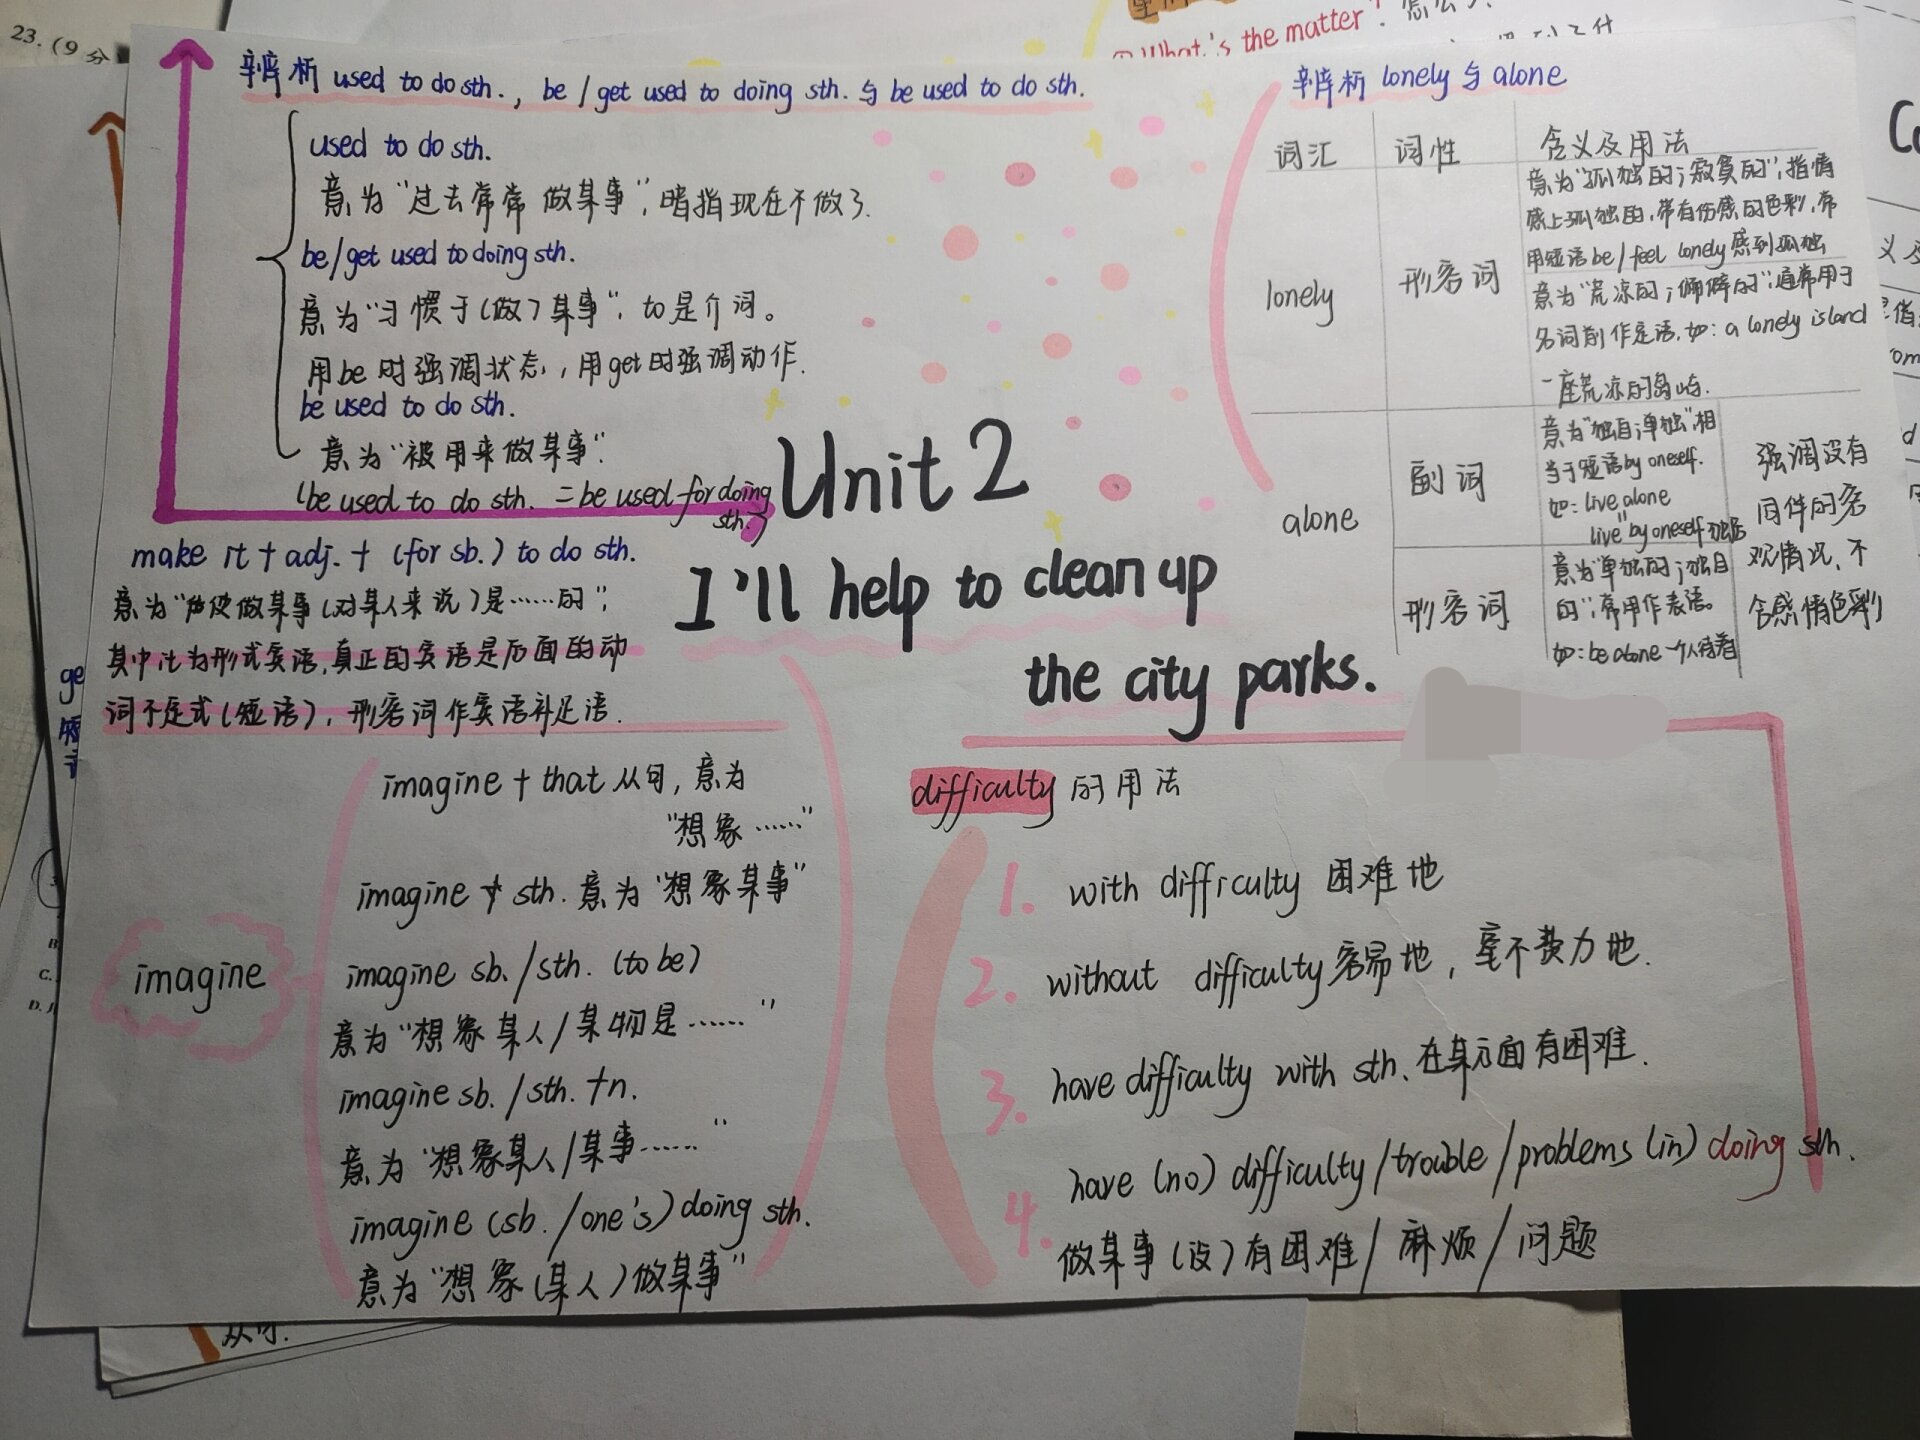 23.(9分
What's the matter?
辨析 used to do sth., be/get used to doing sth. 与 be used to do sth.
used to do sth.
意为“过去常常做某事”,暗指现在不做了.
be/get used to doing sth.
意为“习惯于(做)某事”, to是介词。
用be时强调状态,用get时强调动作.
be used to do sth.
意为“被用来做某事”.
(be used to do sth. = be used for doing
sth.)
辨析 lonely 与 alone
词汇 词性 含义及用法
lonely 形容词
意为“孤独的;寂寞的”,指情
感上孤独的,带有伤感的色彩,常
用短语be/feel lonely感到孤独
意为“荒凉的;偏僻的”,通常用于
名词前作定语.如: a lonely island
一座荒凉的岛屿.
alone
副词
意为“独自;单独”,相
当于短语by oneself.
如: live alone
live by oneself 独居
形容词
意为“单独的;独自
的”,常用作表语。
如: be alone 一个人待着
强调没有
同伴的客
观情况,不
含感情色彩
Unit 2
I'll help to clean up
the city parks.
make it + adj. + (for sb.) to do sth.
意为“使做某事(对某人来说)是……的”,
其中it为形式宾语,真正的宾语是后面的动
词不定式(短语),形容词作宾语补足语.
imagine
imagine + that 从句,意为
“想象……”
imagine + sth. 意为“想象某事”
imagine sb./sth. (to be)
意为“想象某人/某物是……”
imagine sb./sth. +n.
意为“想象某人/某事……”
imagine (sb./one's) doing sth.
意为“想象(某人)做某事”
difficulty 的用法
1. with difficulty 困难地
2. without difficulty 容易地,毫不费力地.
3. have difficulty with sth. 在某方面有困难.
4. have (no) difficulty/trouble/problems (in) doing sth.
做某事(没)有困难/麻烦/问题